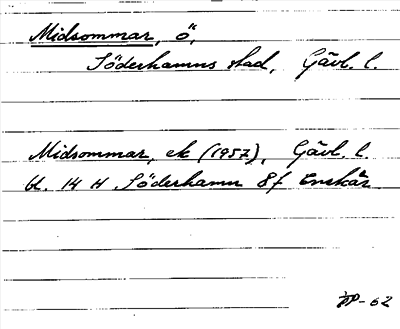 Midsommar, ö,
Söderhamns stad, Gävl. l.
Midsommar, ek (1957), Gävl. l.
bl. 14 H Söderhamn 8f Enskär
-62